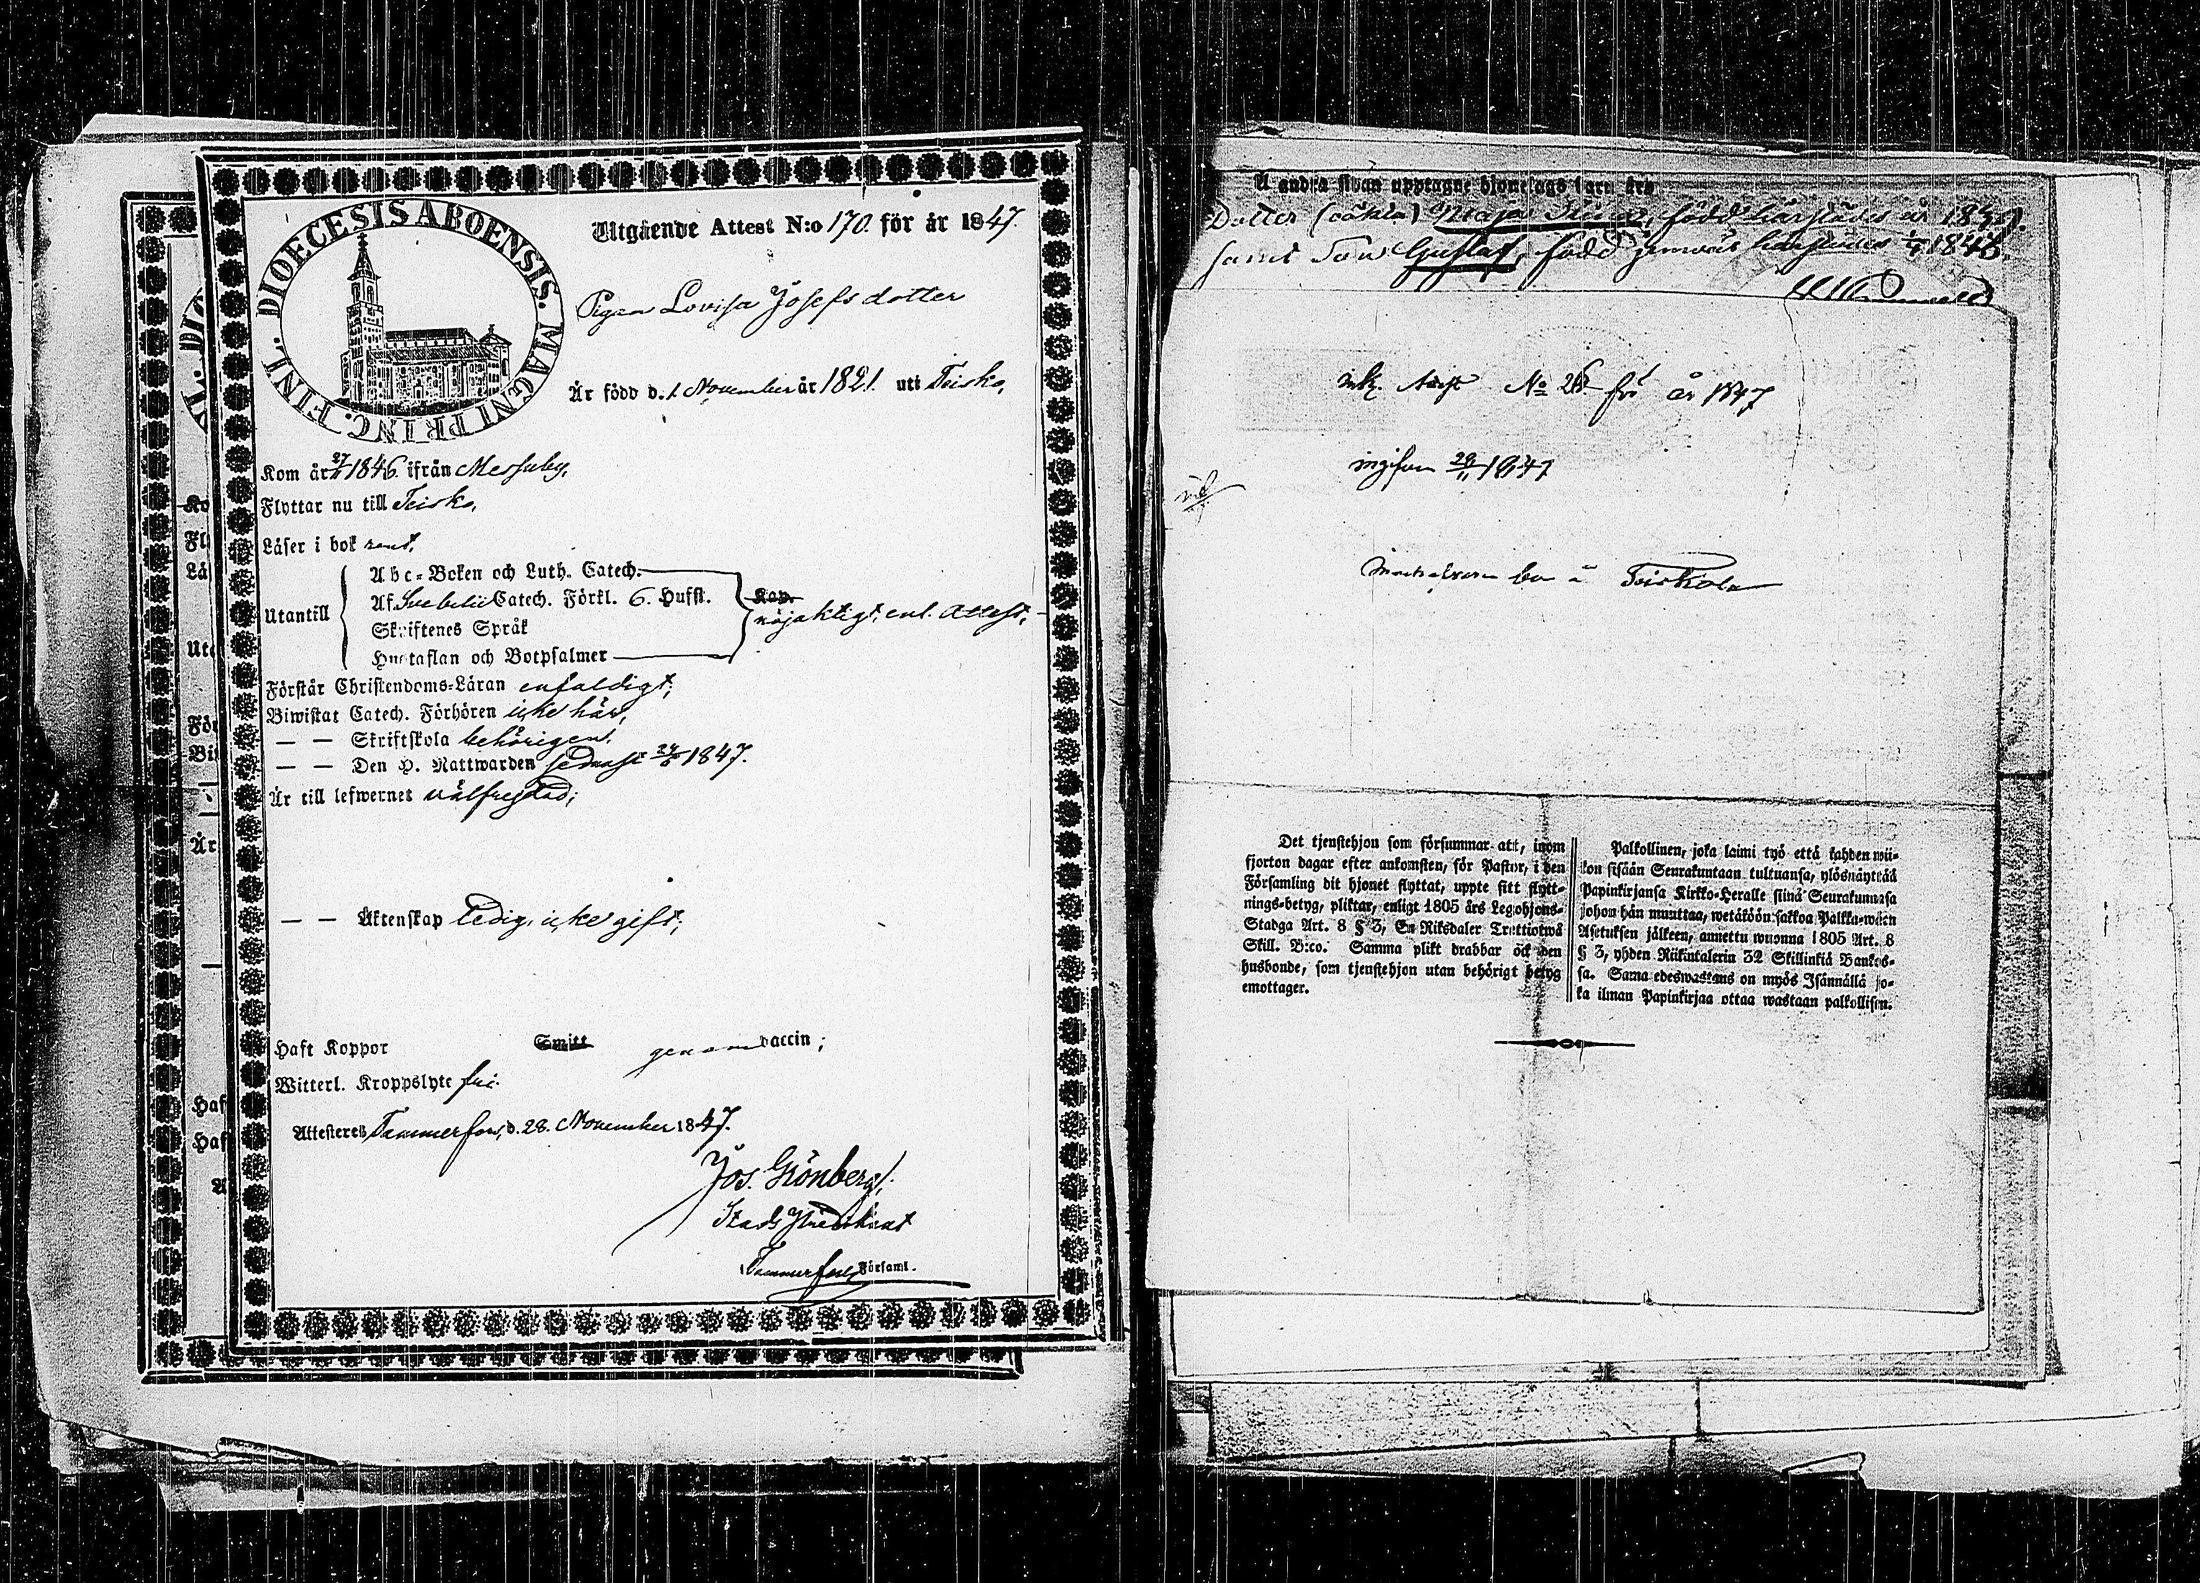 DIOECESIS ABOENSIS. MAGNI PRINC. FINL.
Utgående Attest N:o 170. för år 1847.
Pigan Lovisa Josefsdotter
Är född d. 1 November år 1821. uti Teisko,
Kom år 1846. ifrån Messuby,
Flyttar nu till Teisko,
Läser i bok rent,
Utantill
Abc-Boken och Luth. Catech.
Af Svebelii Catech. Förkl. 6. Hufst.
Skriftenes Språk
Hustaflan och Botpsalmer
nöjaktigt, enl. Attest,
Förstår Christendoms-Läran enfaldigt;
Biwistat Catech. Förhören icke här,
— — Skriftskola behörigen.
— — Den H. Nattwarden sednast 1847.
Är till lefwernet välfrejdad;
— — Äktenskap ledig, icke gift;
Haft Koppor Smitt genom vaccin;
Witterl. Kroppslyte fri.
Attesteres Tammerfors, d. 28. November 1847.
Jos. Grönberg.
Stads Predikant
Tammerfors Församl.
Å andra sidan upptagne hjonelags barn äro
Dotter (oäkta) Maja Stina, född härstädes år
samt Son Gustaf, född 1846.
Attest No för år 1847
1847
bor i Teiskola
Det tjenstehjon som försummar att, inom
fjorton dagar efter ankomsten, för Pastor, i den
Församling dit hjonet flyttat, uppte sitt flytt-
nings-betyg, pliktar, enligt 1805 års Legohjons-
Stadga Art. 8 § 3, En Riksdaler Trettiotwå
Skill. B:co. Samma plikt drabbar ock den
husbonde, som tjenstehjon utan behörigt betyg
emottager.
Palkollinen, joka laimi työ että kahden wii-
kon sisään Seurakuntaan tultuansa, ylösnäyttää
Papinkirjansa Kirkko-Heralle siinä Seurakunnasa
johon hän muuttaa, wetäköön sakkoa Palkka-wäen
Asetuksen jälkeen, annettu wuonna 1805 Art. 8
§ 3, yhden Riikintalerin 32 Skillinkiä Bankos-
sa. Sama edeswastaus on myös Isännällä jo-
ka ilman Papinkirjaa ottaa wastaan palkollisen.